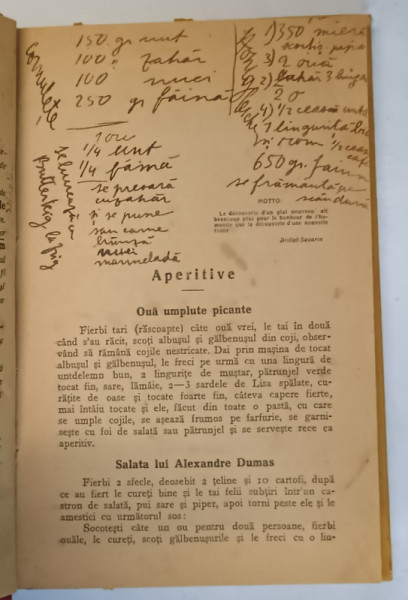 Cornulețe
150 gr. unt
100 " zahăr
100 " nuci
250 gr. făină
1) 350 miere
3) 2 ouă
2) zahăr 3 ling
4) 1/2 ceașcă unt
1 linguriță
și rom 1/2 ceașcă
650 gr. făină
se frământă pe
1 ou
1/4 unt
1/4 făină
se presară
cu zahăr
și se pune
sau carne
brînză
nuci
marmeladă
MOTTO:
La découverte d'un plat nouveau fait
beaucoup plus pour le bonheur de l'hu-
manité que la découverte d'une nouvelle
étoile
Brillat-Savarin
Aperitive
Ouă umplute picante
Fierbi tari (răscoapte) câte ouă vrei, le tai în două
când s'au răcit, scoți albușul și gălbenușul din coji, obser-
vând să rămână cojile nestricate. Dai prin mașina de tocat
albușul și gălbenușul, le freci pe urmă cu una lingură de
untdelemn bun, 2 lingurițe de muștar, pătrunjel verde
tocat fin, sare, lămâie, 2—3 sardele de Lisa spălate, cu-
rățite de oase și tocate foarte fin, câteva capere fierte,
mai întâiu tocate și ele, făcut din toate o pastă, cu care
se umple cojile, se așează frumos pe farfurie, se garni-
sește cu foi de salată sau pătrunjel și se servește rece ca
aperitiv.
Salata lui Alexandre Dumas
Fierbi 2 sfecle, deosebit 2 țeline și 10 cartofi, după
ce au fiert le cureți bine și le tai felii subțiri într'un ca-
stron de salată, pui sare și piper, apoi torni peste ele și le
amestici cu următorul sos:
Socotești câte un ou pentru două persoane, fierbi
ouăle, le cureți, scoți gălbenușurile și le freci cu o lin-